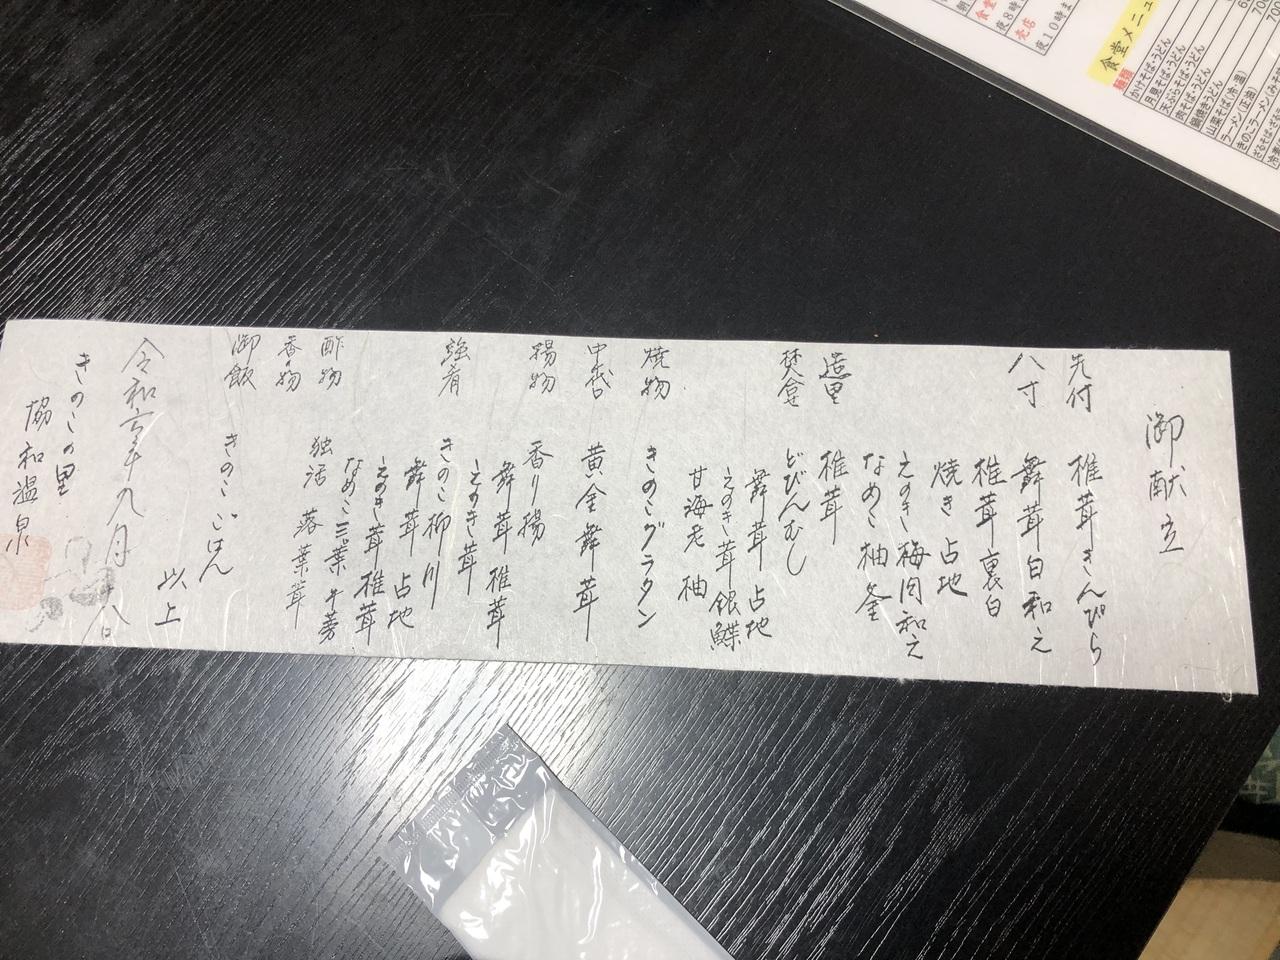 御献立
先付 椎茸きんぴら
八寸 舞茸白和え
椎茸裏白
焼き占地
えのき梅肉和え
なめこ柚釜
造里 椎茸
焚合 どびんむし
舞茸 占地
えのき茸 銀鰈
甘海老 柚
焼物 きのこグラタン
中代 黄金舞茸
揚物 香り揚
舞茸 椎茸
えのき茸
強肴 きのこ柳川
舞茸 占地
えのき茸 椎茸
なめこ 三つ葉 牛蒡
酢物 独活 落葉茸
香の物
御飯 きのこごはん
以上
令和六年九月十八日
きのこの里
協和温泉
食堂メニュー
麺類
かけそば・うどん
月見そば・うどん
天ぷらそば・うどん
肉そば・うどん
鍋焼きうどん
山菜そば(冷・温)
ラーメン(正油)
きのこラーメン(み
売店